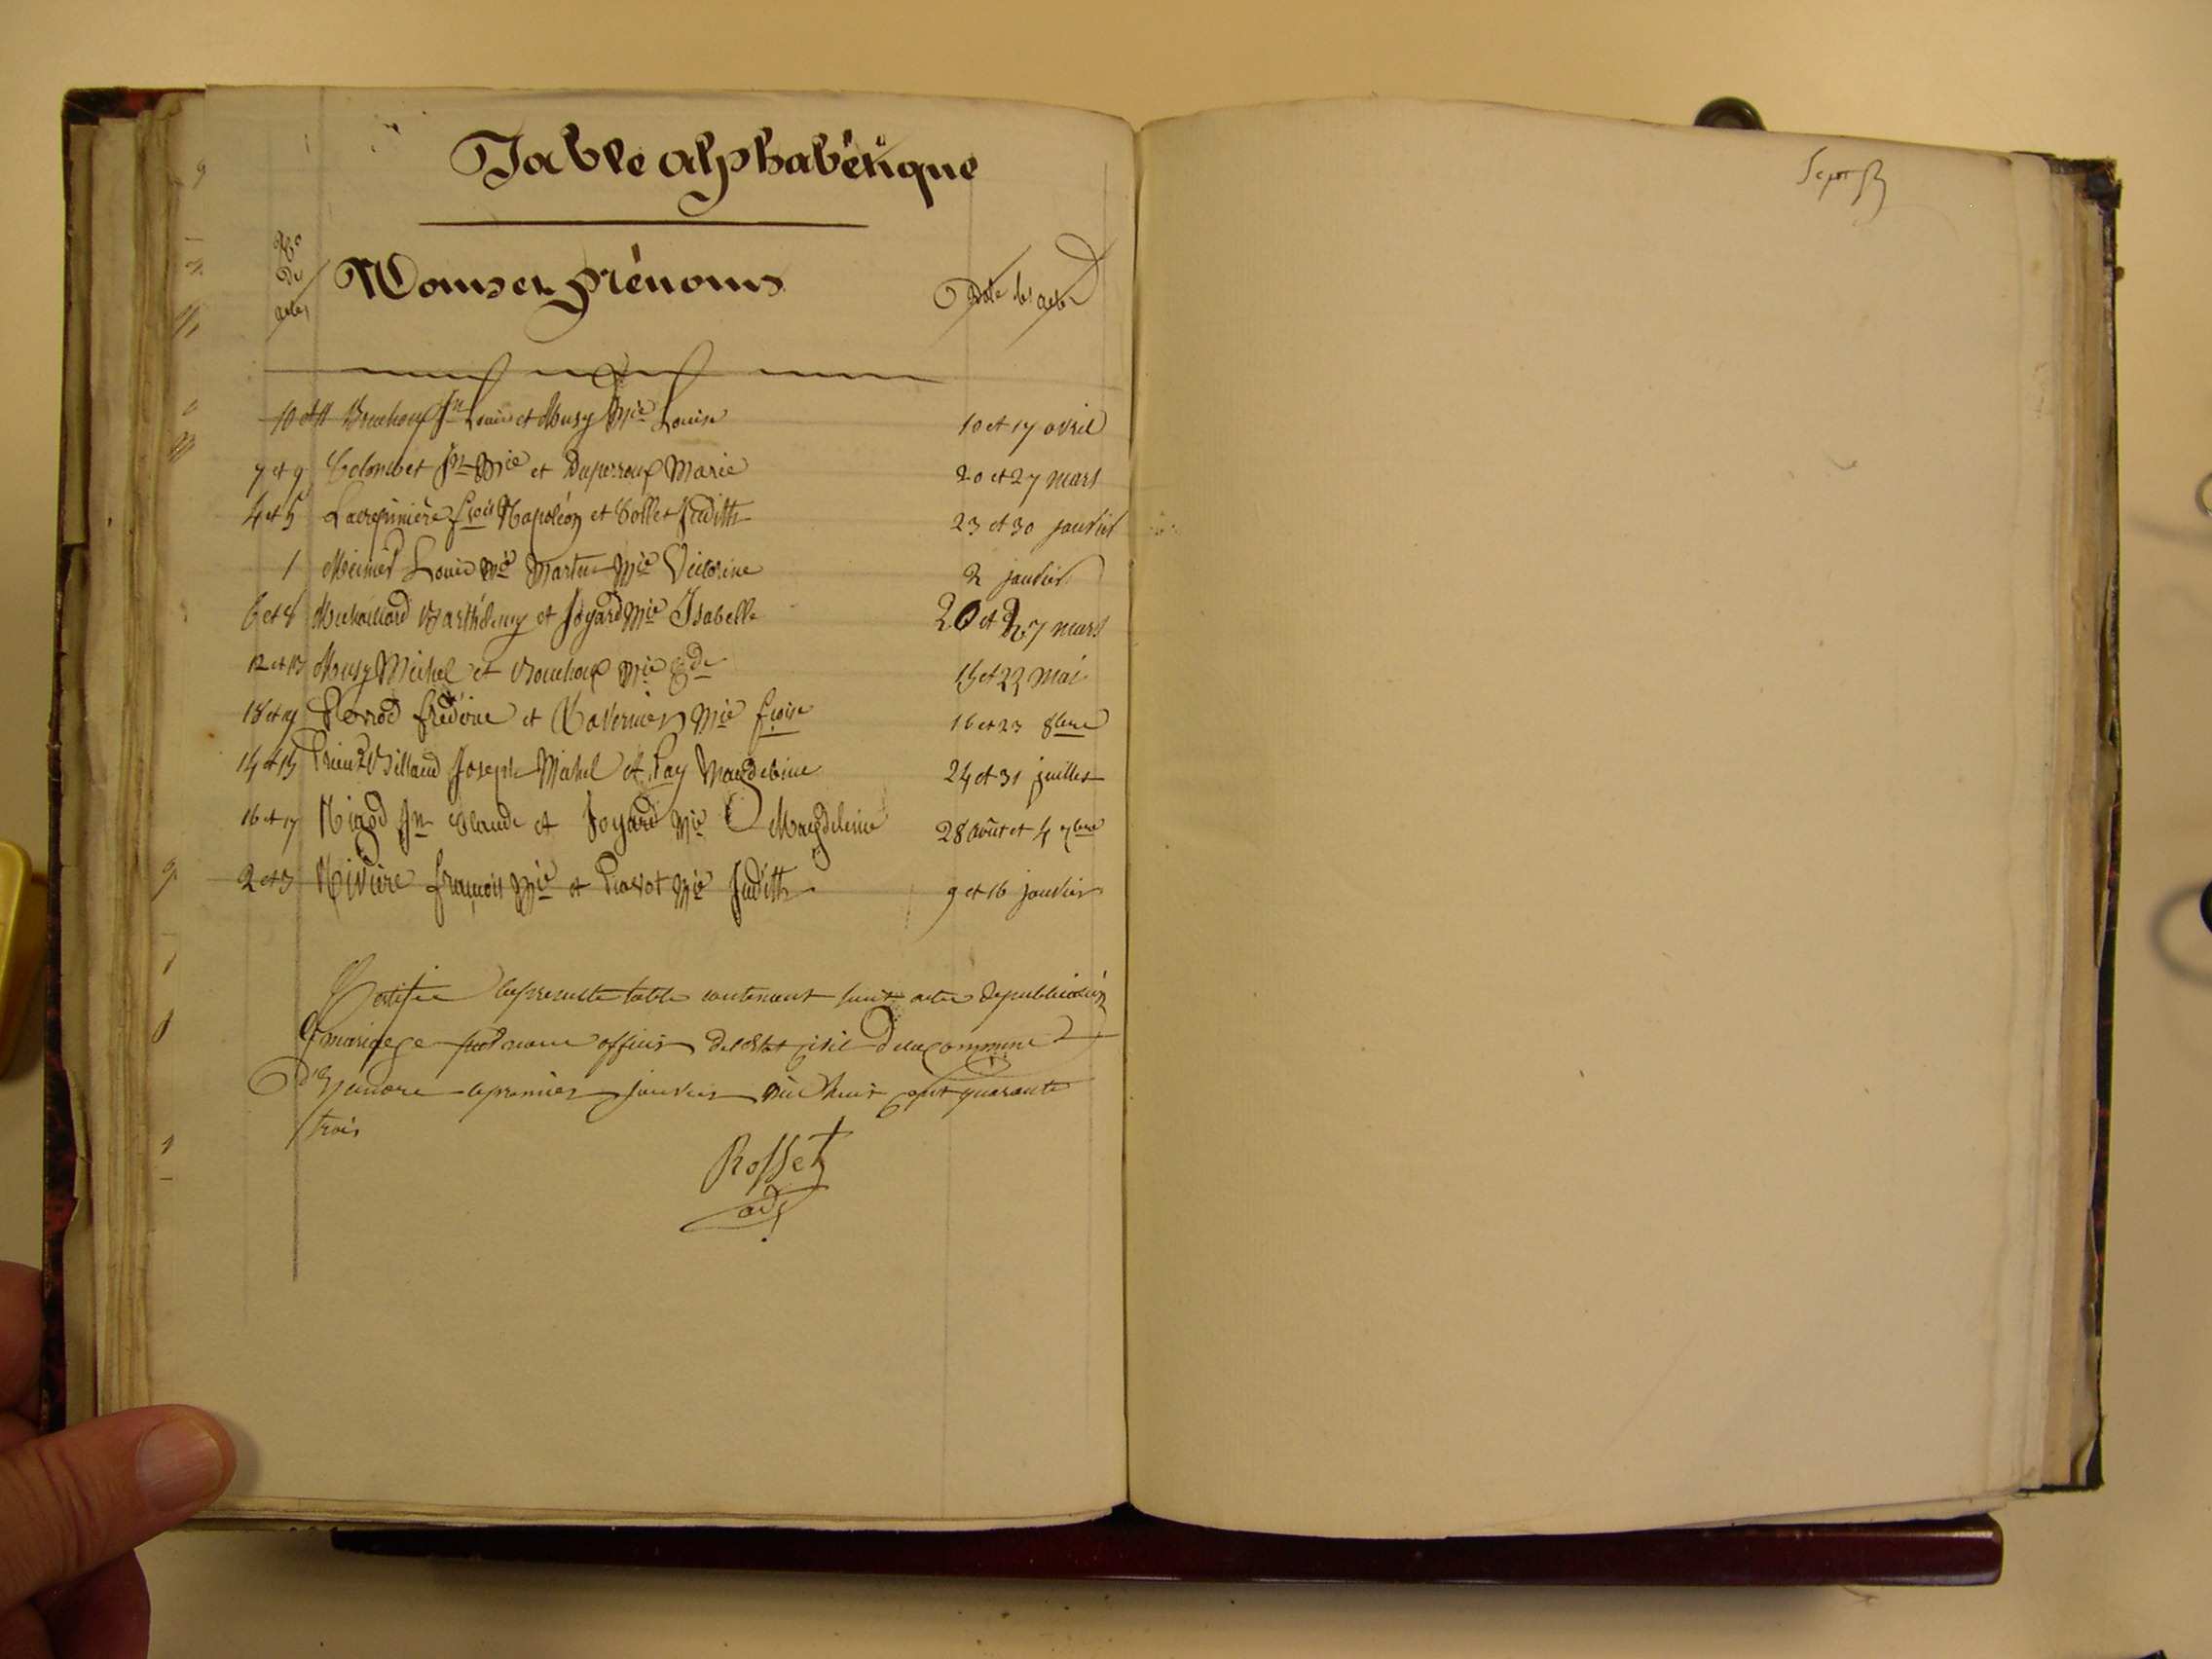 Table alphabétique
No
de
actes
Noms et prénoms
Date des actes
10 et 11 Bouchoux Jn Louis et Musy Mie Louise 10 et 17 avril
7 et 9 Colombet Jn Mie et Duperroux Marie 20 et 27 mars
4 et 5 Lacrepinière fçois Napoléon et Collet Judith 23 et 30 janvier
1 Meunier Louis Me Martin Mie Victorine 2 janvier
6 et 8 Michaillard Barthélemy et Joyard Mie Isabelle 20 et 27 mars
12 et 13 Musy Michel et Bouchoux Mie 15 et 22 mai
18 et 19 Perrod frédéric et Tavernier Mie fçoise 16 et 23 8bre
14 et 15 Billaud Joseph Michel et Pay Magdeleine 24 et 31 juillet
16 et 17 Nigod Jn Claude et Joyard Mie C Magdeleine 28 août et 4 7bre
2 et 3 Rivière françois Mie et Mie Judith 9 et 16 janvier
Certifiée la présente table contenant actes de publication
de mariage par nous officier de l'état civil de la commune
le premier janvier mil huit cent quarante
trois
Rosset
adj
Sept